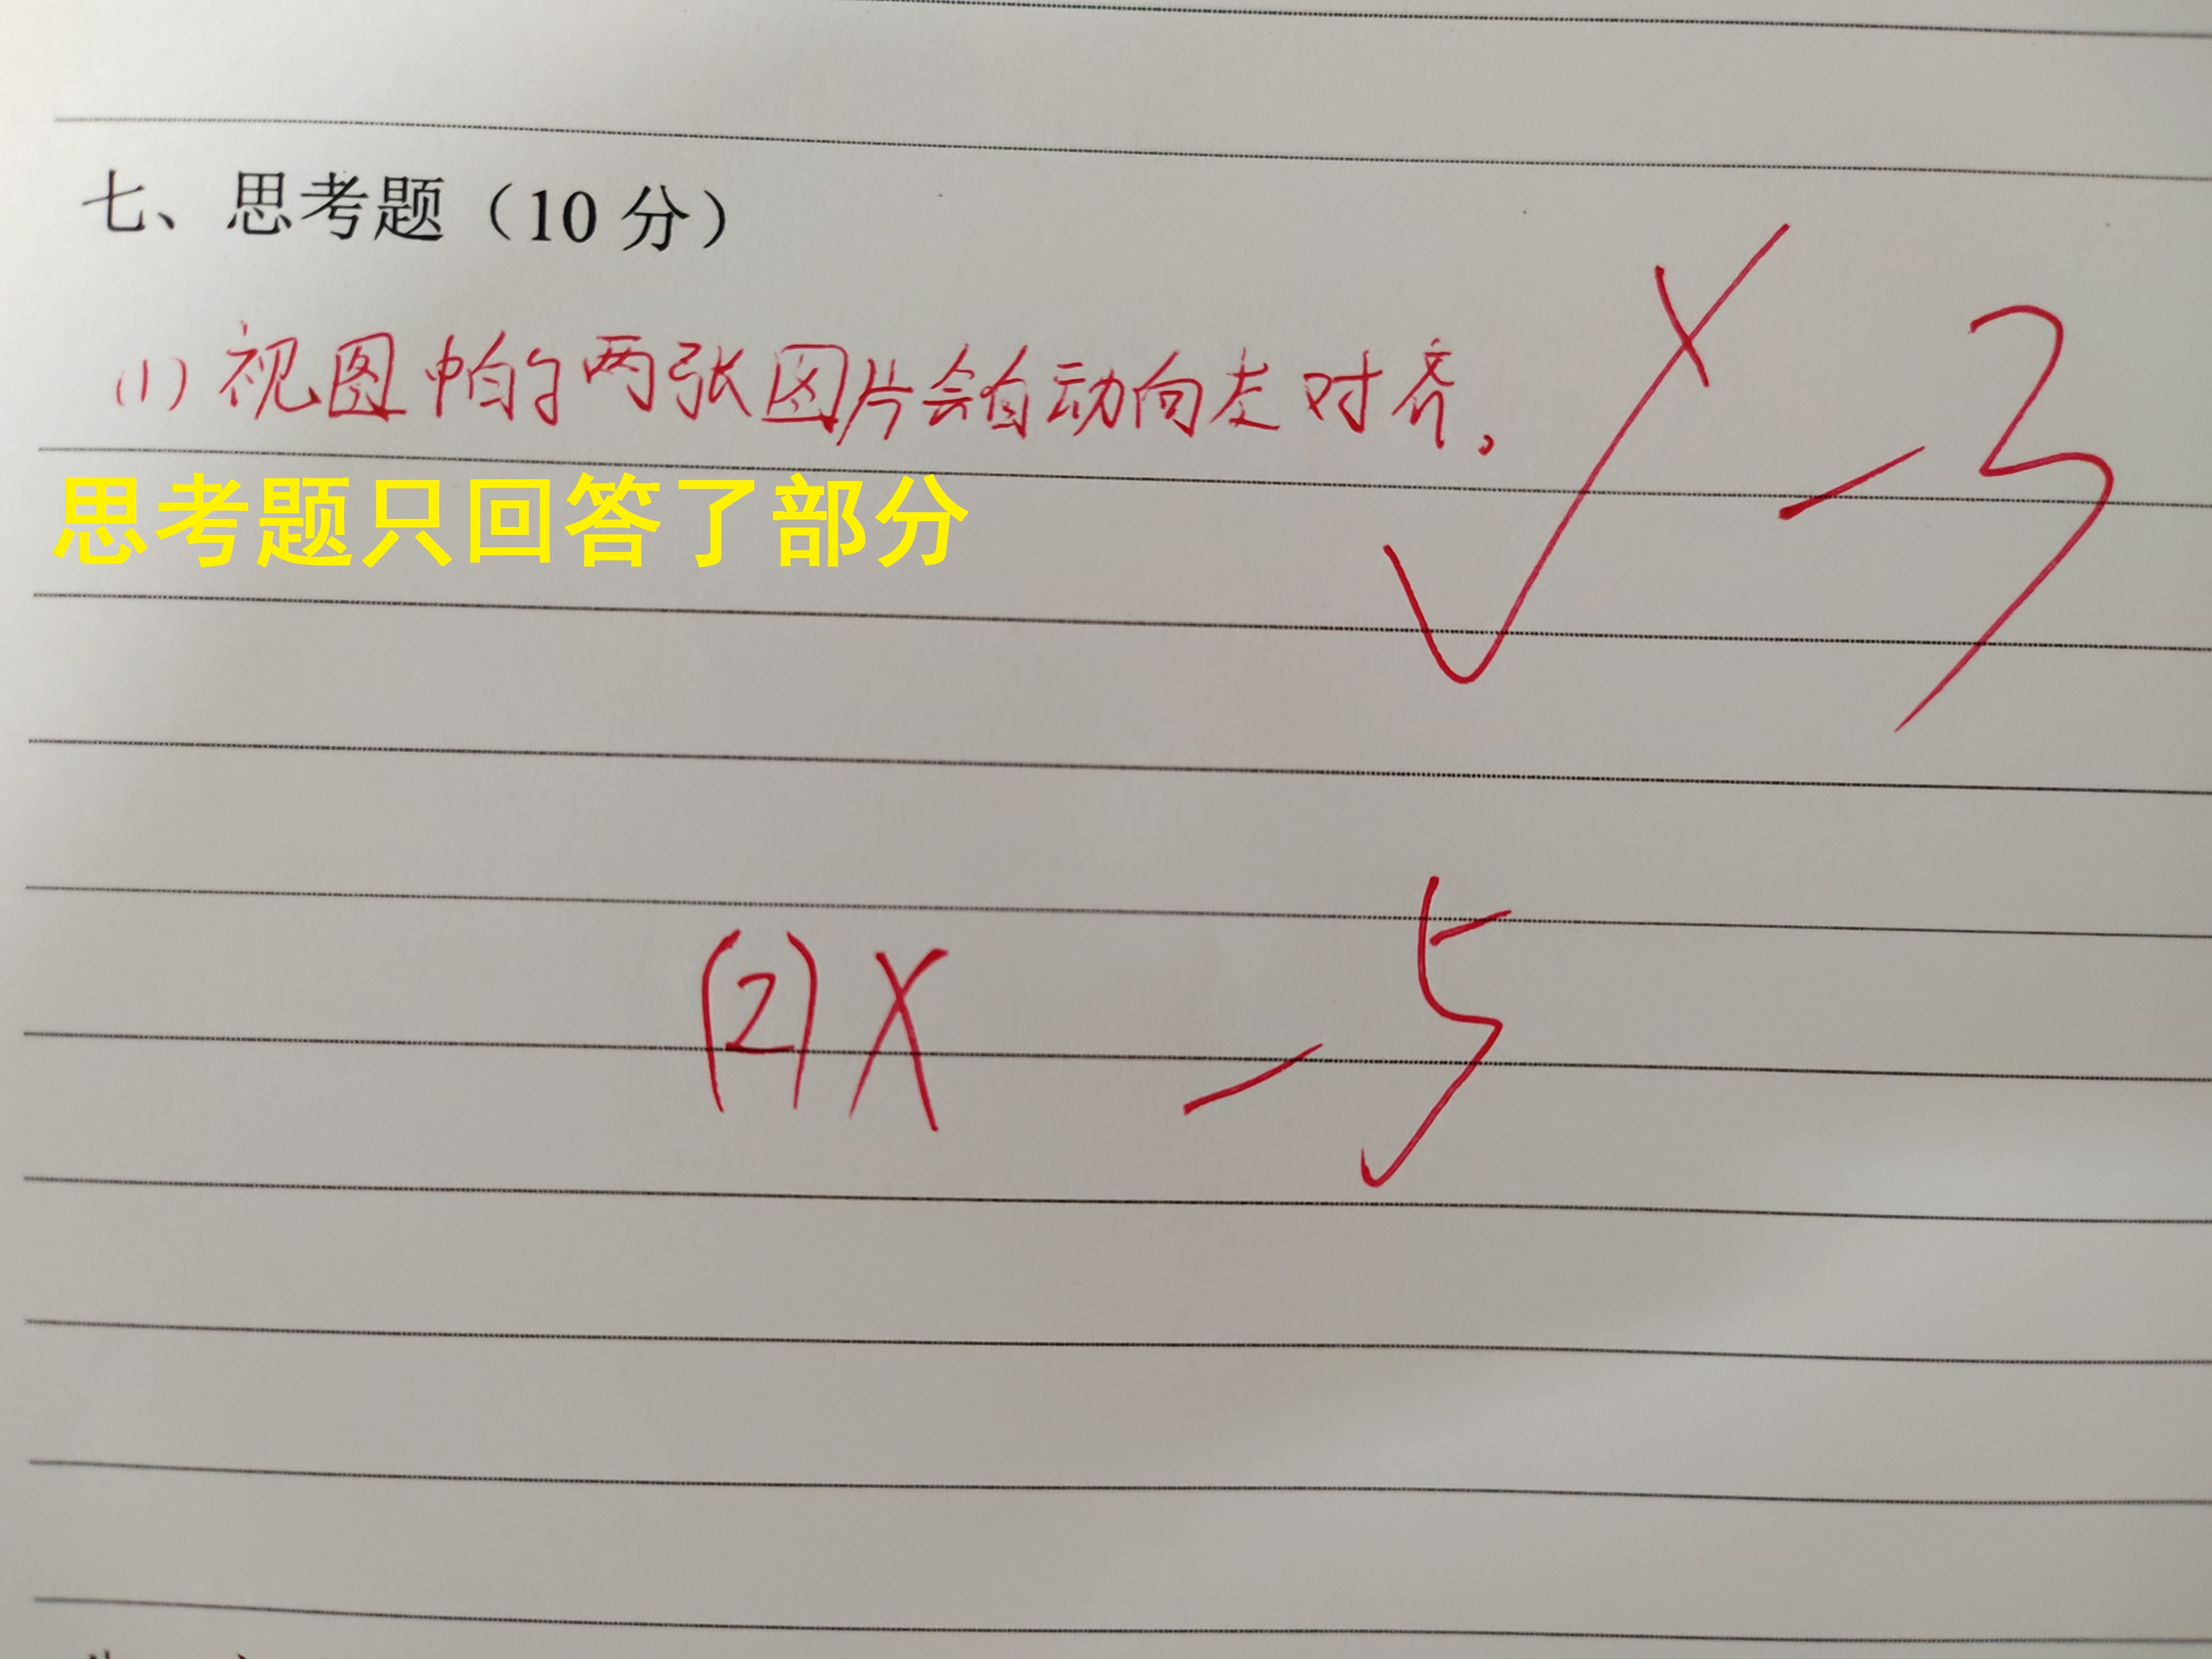 七、思考题（10 分）
(1) 视图中的两张图片会自动向左对齐。
-3
思考题只回答了部分
(2) ×
-5